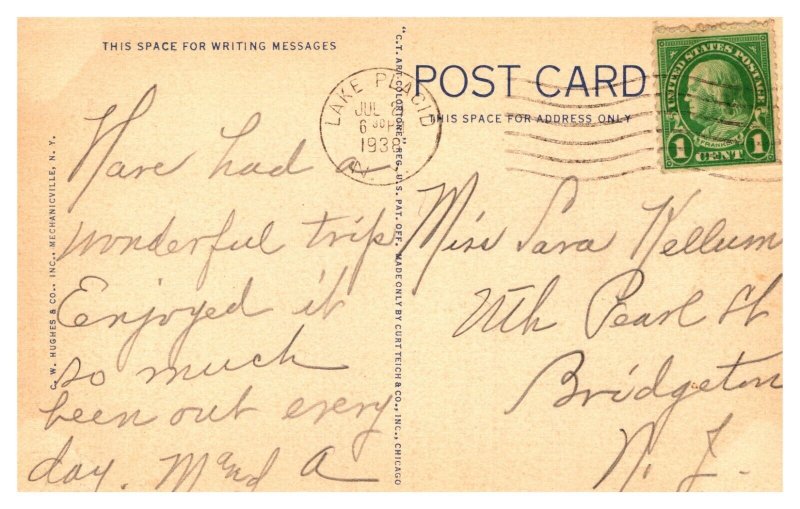 THIS SPACE FOR WRITING MESSAGES
Have had a
wonderful trip
Enjoyed it
so much
been out every
day. M and A
C. W. HUGHES & CO., INC., MECHANICVILLE, N. Y.
"C.T. ART-COLORTONE" REG. U.S. PAT. OFF. MADE ONLY BY CURT TEICH & CO., INC., CHICAGO
POST CARD
THIS SPACE FOR ADDRESS ONLY
LAKE PLACID
JUL
6 30 P
1938
N
UNITED STATES POSTAGE
FRANKLIN
1 CENT 1
Miss Sara Kellum
Pearl St
Bridgeton
N. J.